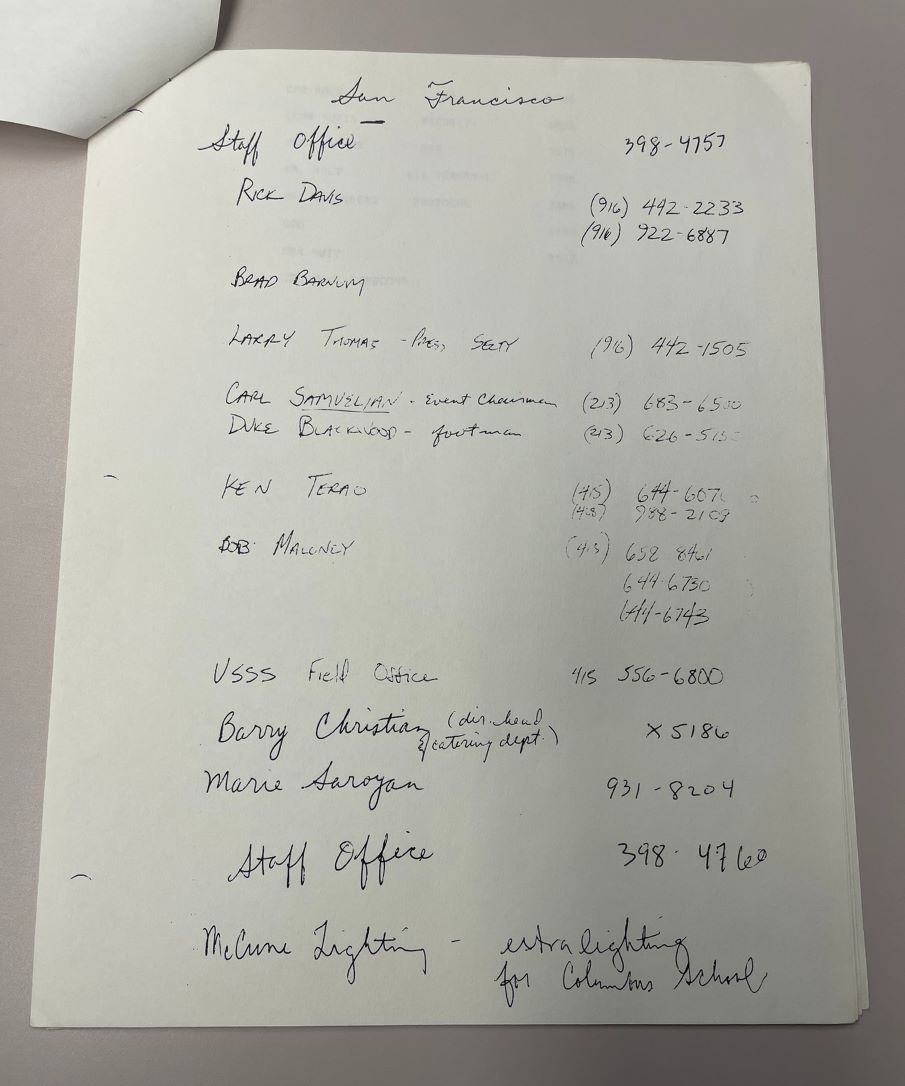 San Francisco
Staff Office 398-4757
RICK DAVIS (916) 442-2233
(916) 922-6887
BRAD BARNUM
LARRY THOMAS - PRESS SECTY (916) 442-1505
CARL SAMVELIAN - Event Chairman (213) 683-6500
DUKE BLACKWOOD - footman (213) 626-515
KEN TERAO (415) 644-607
(408) 988-2109
BOB MALONEY (415) 652 8461
644-6730
644-6743
USSS Field Office 415 556-6800
Barry Christian (dir. head X5186
& catering dept.)
Marie Saroyan 931-8204
Staff Office 398-4760
McCune Lighting - extra lighting
for Columbus School